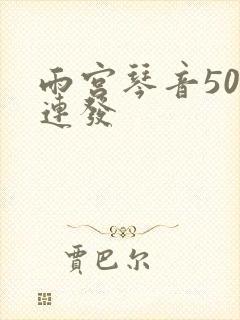 雨宮琴音50
連發
賈巴尔